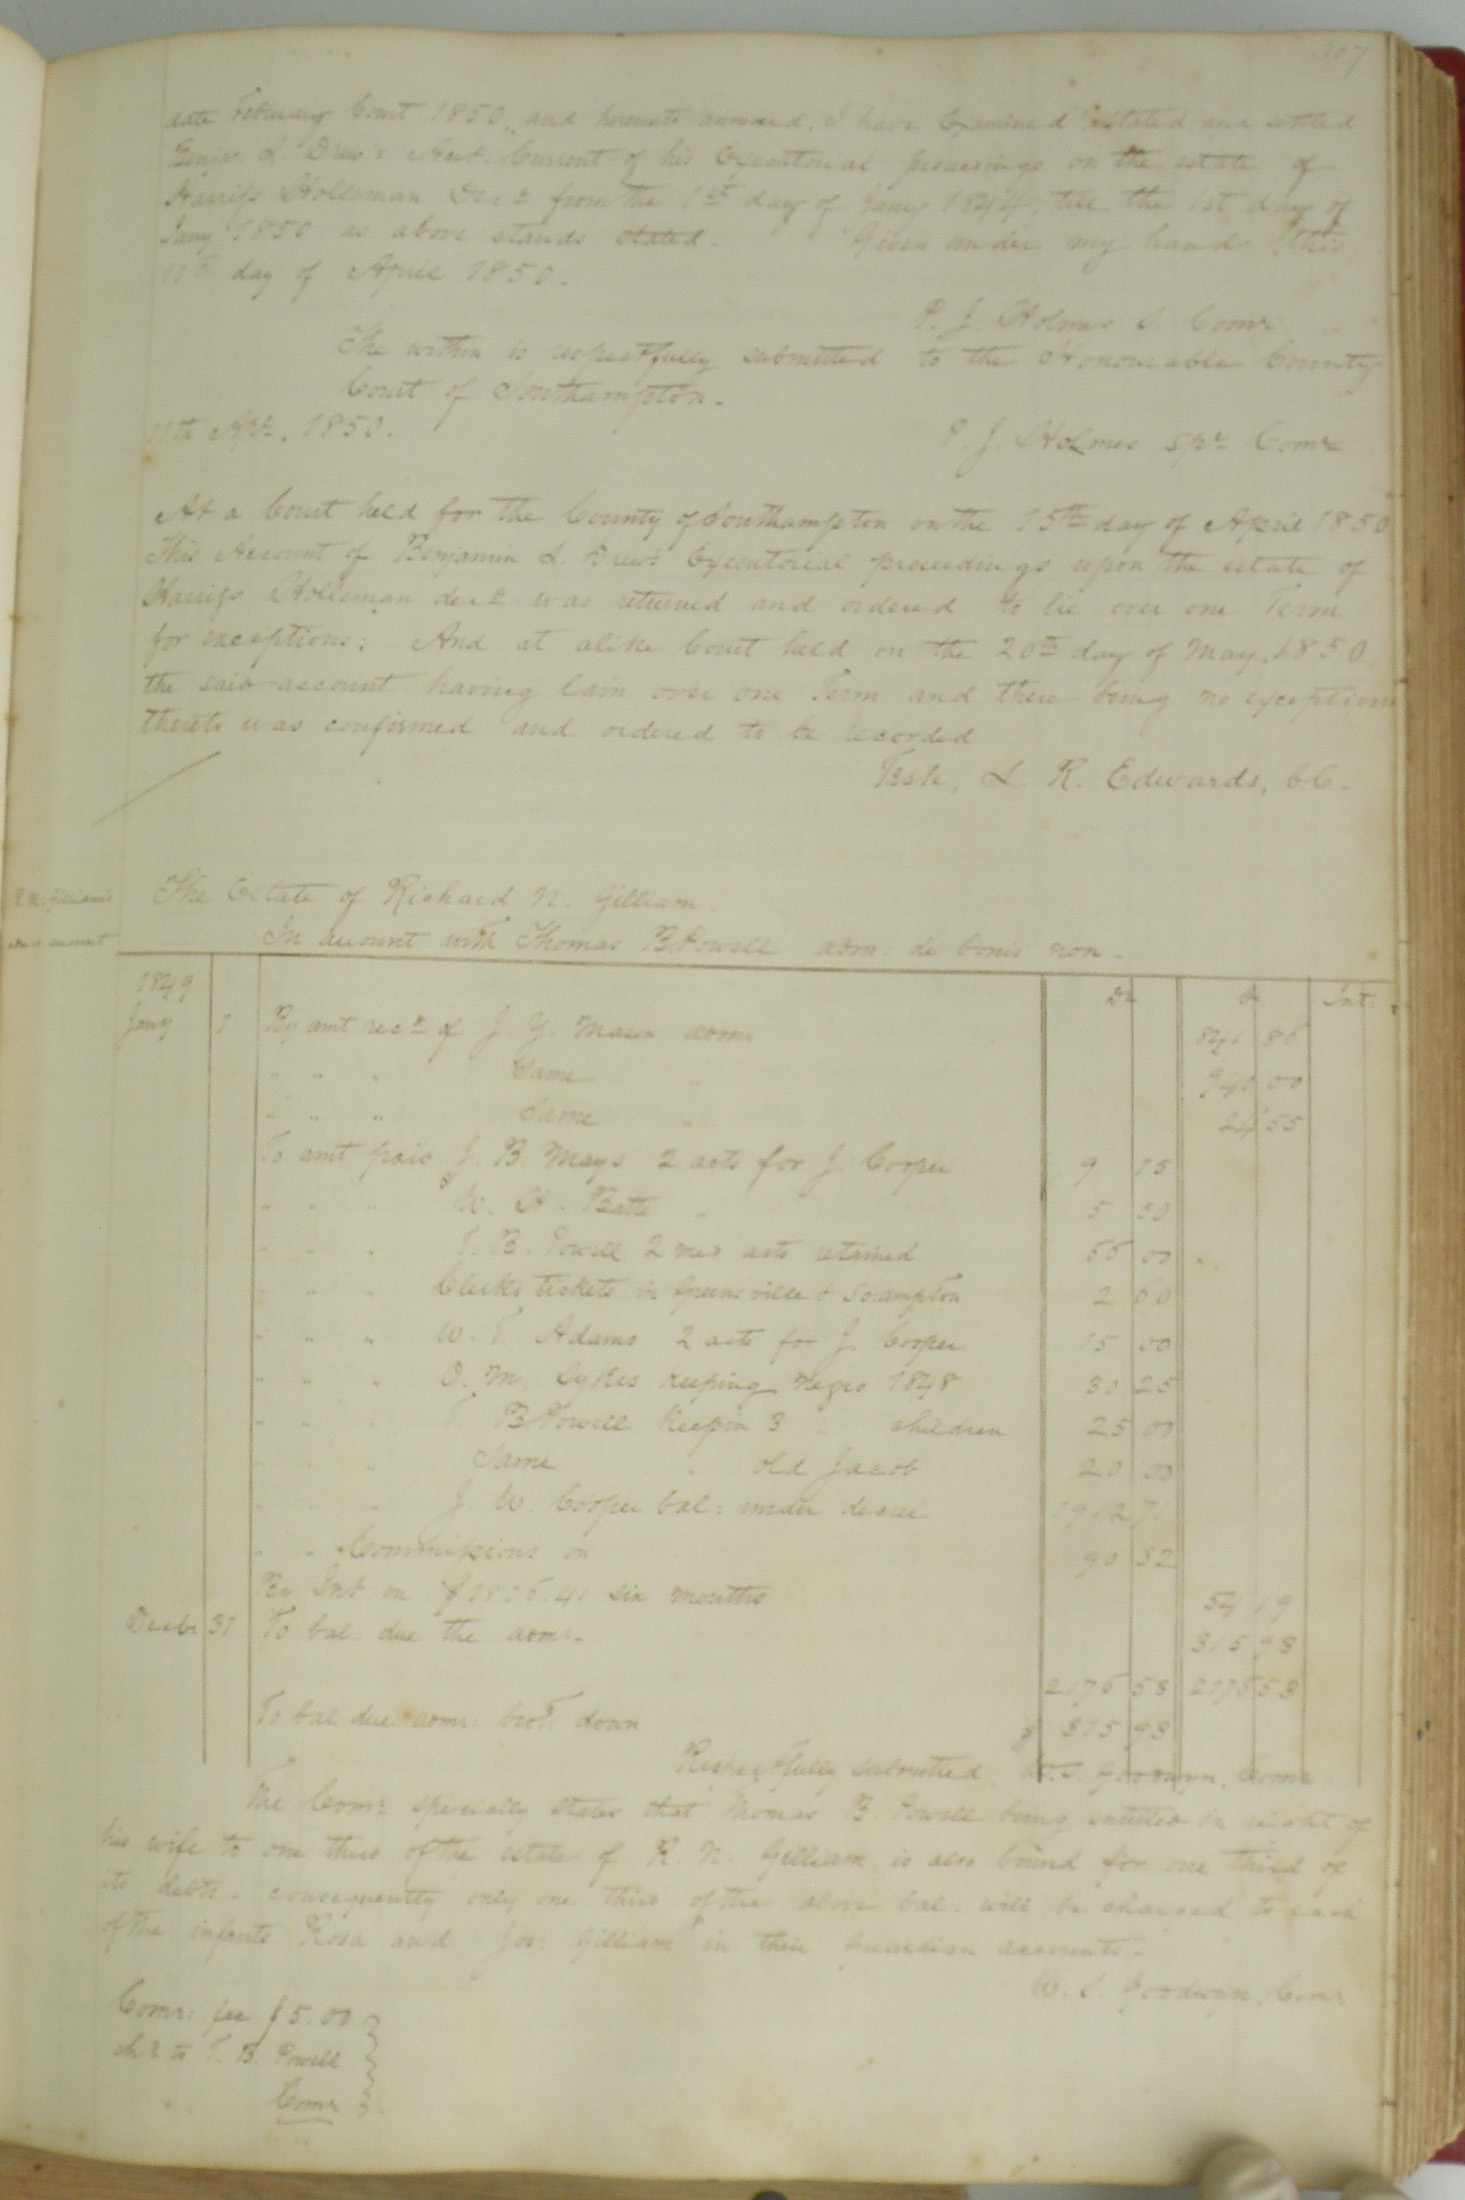 date February Court 1850, and hereunto annexed, I have Examined stated and settled
Benja. L. Drew's Acct. Current of his Executorial proceedings on the estate of
Harriss Holleman Decd from the 1st day of Jany 1844, till the 1st day of
Jany 1850 as above stands stated. Given under my hand this
11th day of April 1850.
P. J. Holmes S. Comr
The within is respectfully submitted to the Honourable County
Court of Southampton.
11th Apl. 1850.
P. J. Holmes Spl Comr
At a Court held for the County of Southampton on the 15th day of April 1850
This Account of Benjamin L. Drew's Executorial proceedings upon the estate of
Harriss Holleman decd was returned and ordered to lie over one Term
for exceptions; And at alike Court held on the 20th day of May, 1850
the said account having lain over one Term and there being no exceptions
thereto was confirmed and ordered to be recorded
Teste, L. R. Edwards, CC.
R. N. Gilliam's
account
The Estate of Richard N. Gilliam.
In account with Thomas B. Powell adm. de bonis non.
1849 Dr Cr Int:
Jany 1 By amt recd of J. Y. Mason admr 841 86
" " " Same " 940 00
" " " Same " 24 55
To amt paid J. B. Mays 2 acts for J. Cooper 9 15
" " " W. H. Batte " 5 50
" " " T. B. Powell 2 med acts retained 66 00
" " " Clerks tickets in Greensville & Sohampton 2 60
" " " W. T. Adams 2 acts for J. Cooper 15 00
" " " O. M. Sykes keeping negro 1848 30 25
" " " T. B. Powell Keepin 3 " children 25 00
" " " Same " old Jacob 20 00
" " " J. W. Cooper bal: under decree 1912 71
" " Commissions on 90 32
By Int on $1806.41 six months 54 19
Decbr 31 To bal due the admr. 315 93
2176 53 2176 53
To bal due admr: brot down $ 315 93
Respectfully submitted, W. S. Goodwyn, Comr
The Comr specially states that Thomas B. Powell being entitled in right of
his wife to one third of the estate of R. N. Gilliam, is also bound for one third of
its debts. consequently only one third of the above bal: will be charged to each
of the infants Rosa and Jos: Gilliam in their Guardian accounts.
W. S. Goodwyn, Comr
Comr: fee $5.00
chd to T. B. Powell
Comr